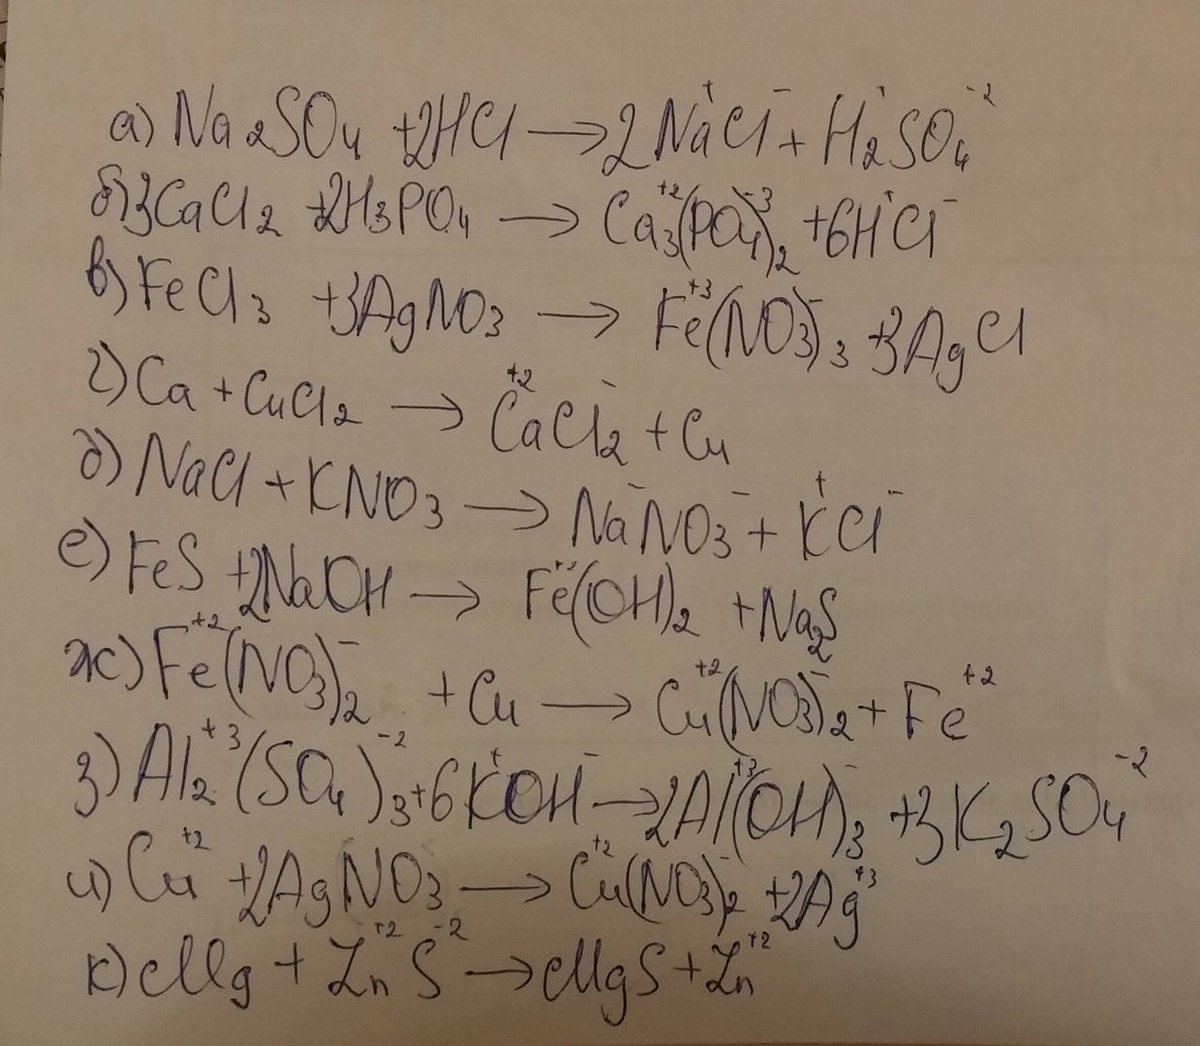 а) Na₂SO₄ +2HCl → 2Na⁺Cl⁻ + H₂⁺SO₄⁻²
б) 3CaCl₂ +2H₃PO₄ → Ca₃⁺²(PO₄)₂⁻³ +6H⁺Cl⁻
в) FeCl₃ +3AgNO₃ → Fe⁺³(NO₃)₃⁻ +3AgCl
г) Ca + CuCl₂ → Ca⁺²Cl₂⁻ + Cu
д) NaCl + KNO₃ → Na⁻NO₃⁻ + K⁺Cl⁻
е) FeS +2NaOH → Fe(OH)₂ + Na₂S
ж) Fe⁺²(NO₃)₂⁻ + Cu → Cu⁺²(NO₃)₂⁻ + Fe⁺²
з) Al₂⁺³(SO₄)₃⁻² +6K⁺OH⁻ → 2Al⁺³(OH)₃⁻ +3K₂SO₄⁻²
и) Cu⁺² +2AgNO₃ → Cu⁺²(NO₃)₂⁻ +2Ag⁺³
к) Mg + Zn⁺²S⁻² → MgS + Zn⁺²